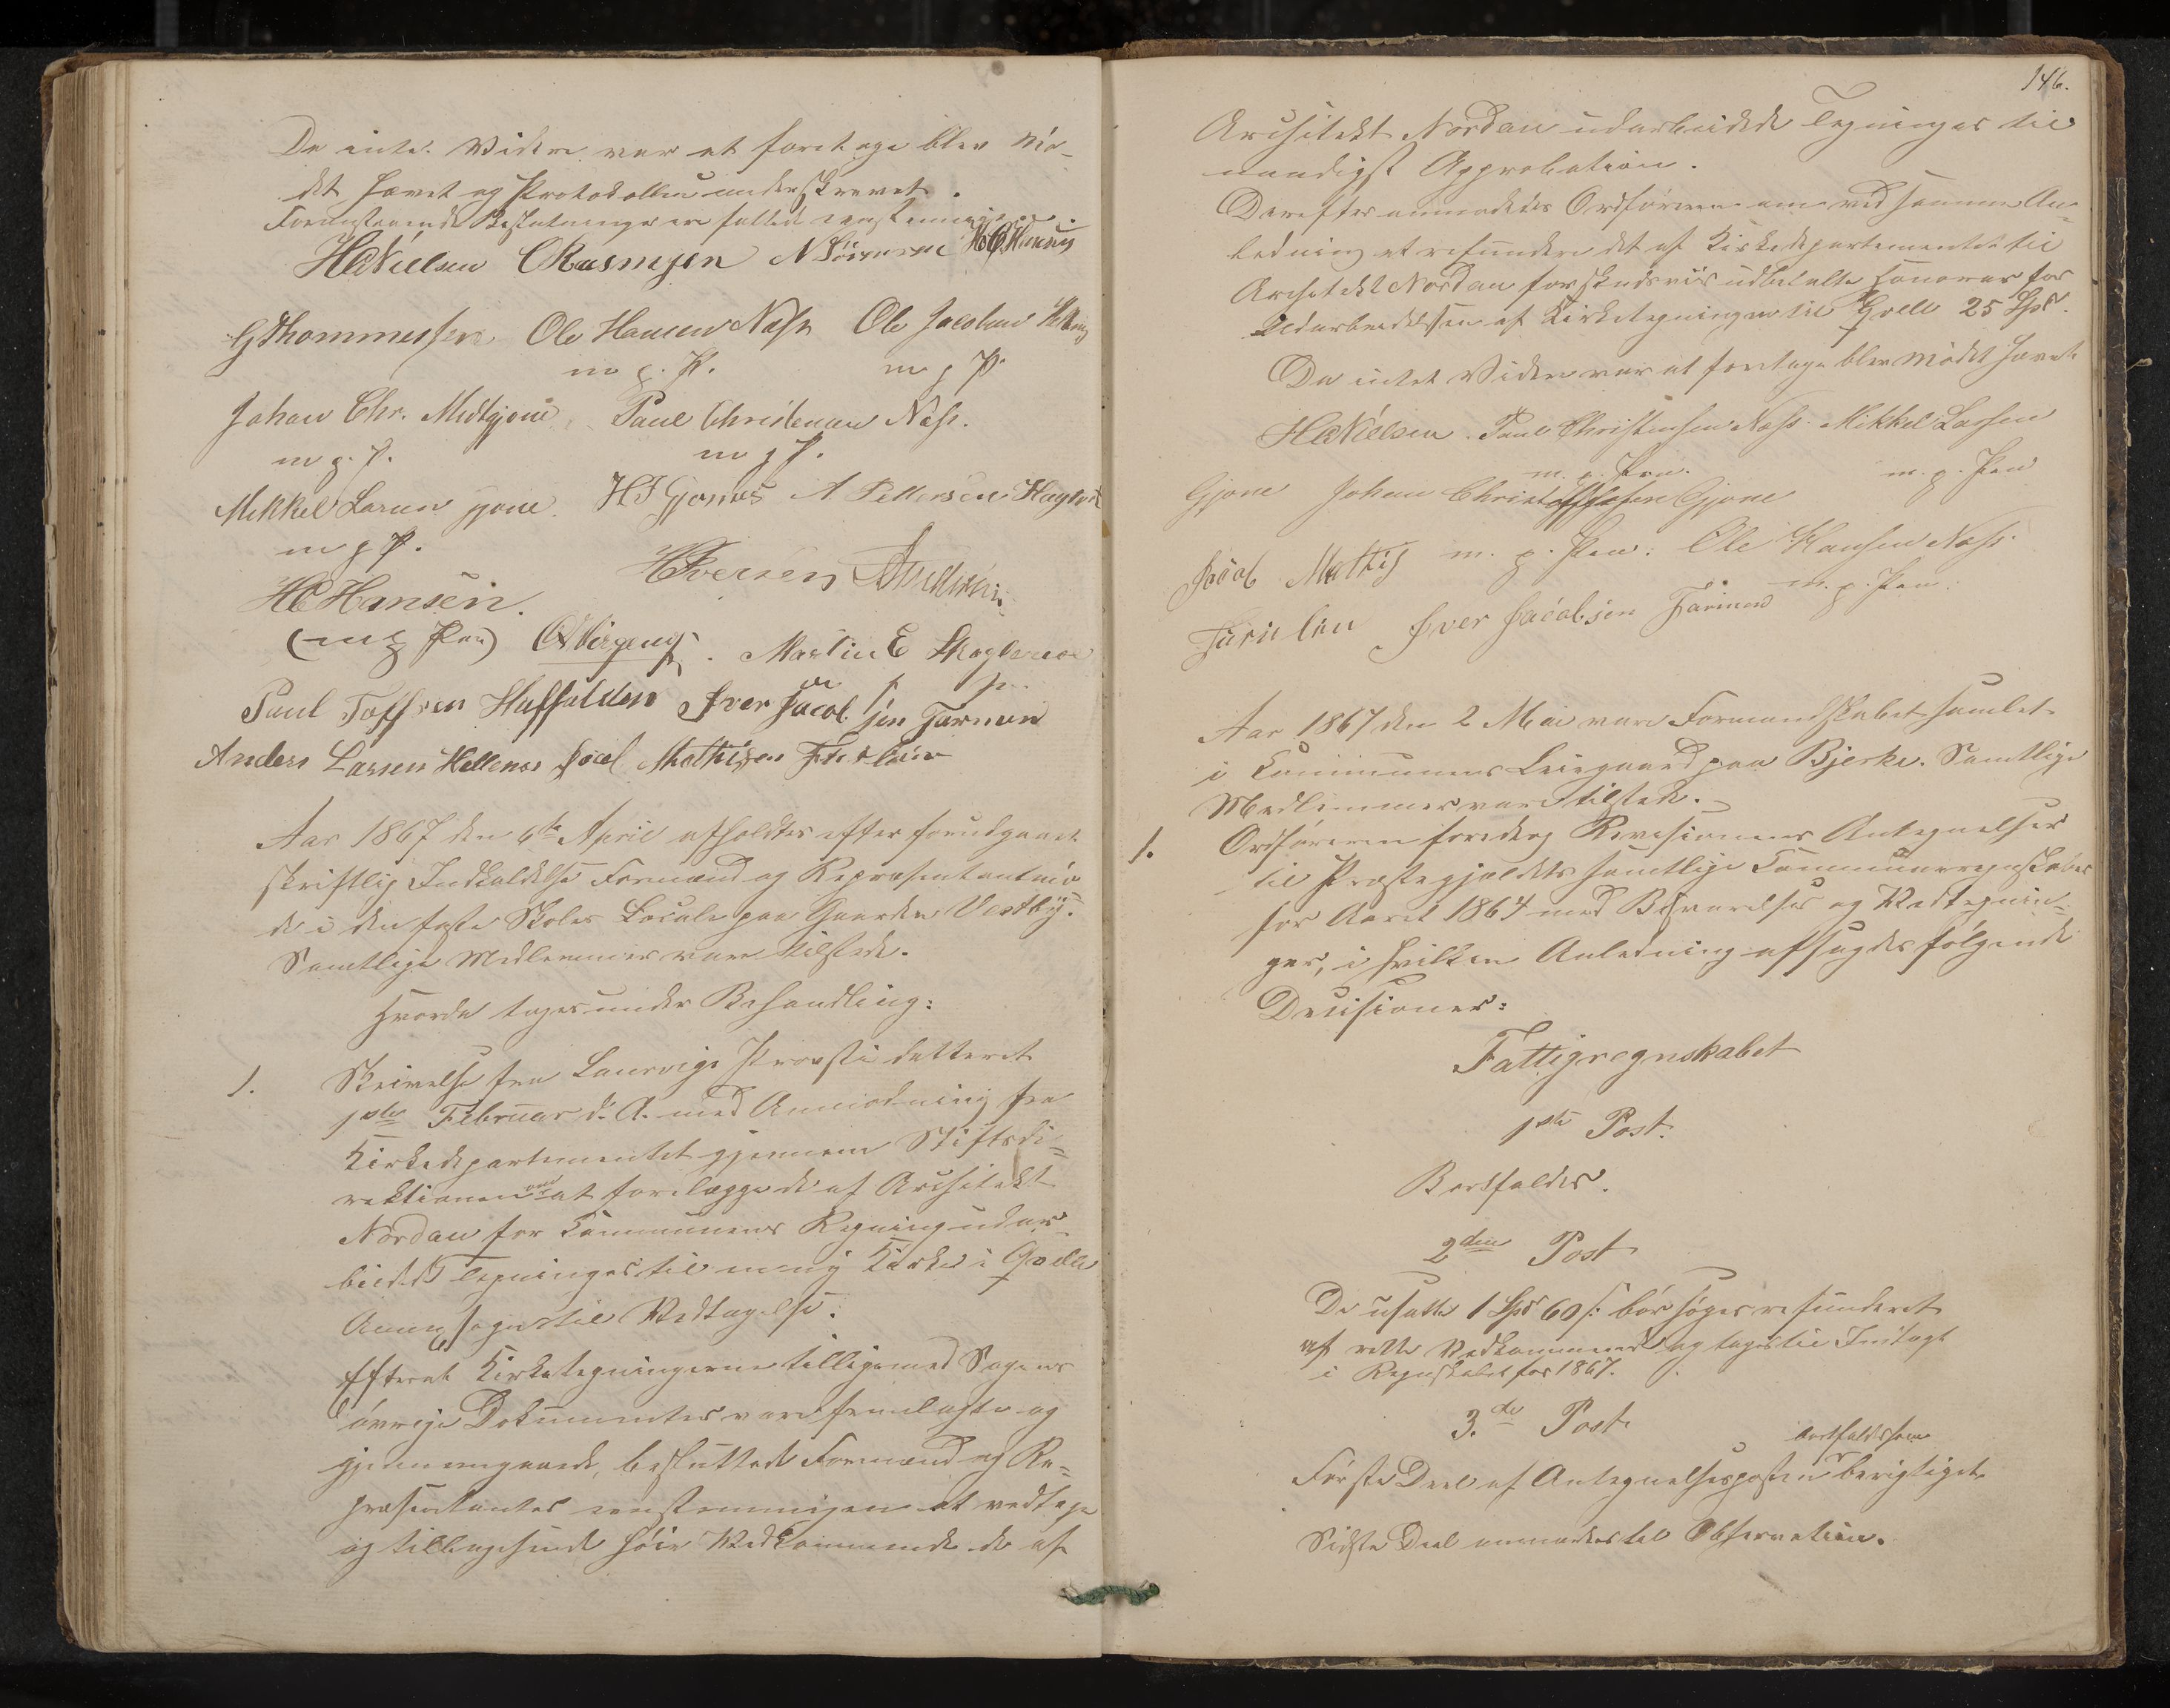 Da intet Videre var at foretage blev Mö-
det hævet og Protokollen underskrevet.
Foranstaaende Beslutninger ere fattede eenstemmigen.
HCNielsen CRasmussen N Sörensen HCHansen
GThommesen Ole Hansen Næss Ole Jacobsen
m. p. P. m p P.
Johan Chr. Midtgjone Paul Christensen Næss.
m. p. P. m p P.
Mikkel Larsen gjone. HJGjonnes A Pettersen
m p P.
HIversen
HCHansen.
(m p Pen) Martin E
m p p.
Paul Toffsen Haffsalden Iver Jacobsen Farmen
Anders Larsen Hellenes Jacob Mathisen Furulun
Aar 1867 den 6te April afholdtes efter forudgaaet
skriftlig Indkaldelse Formænd og Repræsentantmö-
de i den faste Skoles Locale paa Gaarden Vestby.
Samtlige Medlemmer vare tilstede.
Hvorda toges under Behandling:
1. Skrivelse fra Laurvigs Provsti dateret
1ste Februar d. A. med Anmodning fra
Kirkedepartementet gjennem Stiftsdi-
rektionen om at forelægge de af Architekt
Nordan for Communens Regning udar-
beidede Tegninger til en ny Kirke i Qvelle
Annexsogn til Vedtagelse.
Efterat Kirketegningerne tilligemed Sagens
övrige Dokumenter vare fremlagte og
gjennemgaaede, besluttede Formænd og Re-
præsentanter eenstemmigen at vedtage
og tilbagesende höie Vedkommende de af
146.
Architekt Nordan udarbeidede Tegninger til
naadigst Approbation.
Derefter anmodedes Ordföreren om ved samme An-
ledning at refundere det af Kirkedepartementet til
Architekt Nordan forskudsviis udbetalte Honorar for
Udarbeidelsen af Kirketegninger til Qvelle 25 Spd.
Da intet Videre var at foretage blev Mödet hævet
HCNielsen. Paul Christensen Næss. Mikkel Larsen
m. p. Pen. m. p. Pen
Gjone Johan Christoffersen Gjone
Jacob Mathis m. p. Pen. Ole Hansen Næss.
m. p. Pen.
Furulun Iver Jacobsen Farmen
Aar 1867 den 2 Mai vare Formandskabet samlet
i Communens Leiegaard paa Bjerke. Samtlige
Medlemmer vare tilstede.
1. Ordföreren foredrog Revisionens Antegnelser
til Præstegjeldets samtlige Communeregnskaber
for Aaret 1864 med Besvarelser og Vedtegnin-
ger, i hvilken Anledning afsagdes fölgende
Decisioner:
Fattigregnskabet
1ste Post.
Bortfalder.
2den Post
De usatte 1 Spd 60 s: bör söges refunderet
af rette Vedkommende og tages til Indtægt
i Regnskabet for 1867.
3.die Post.
bortfalder som
Förste Deel af Antegnelsesposten berigtiget
Sidste Deel anmodes til Observation.